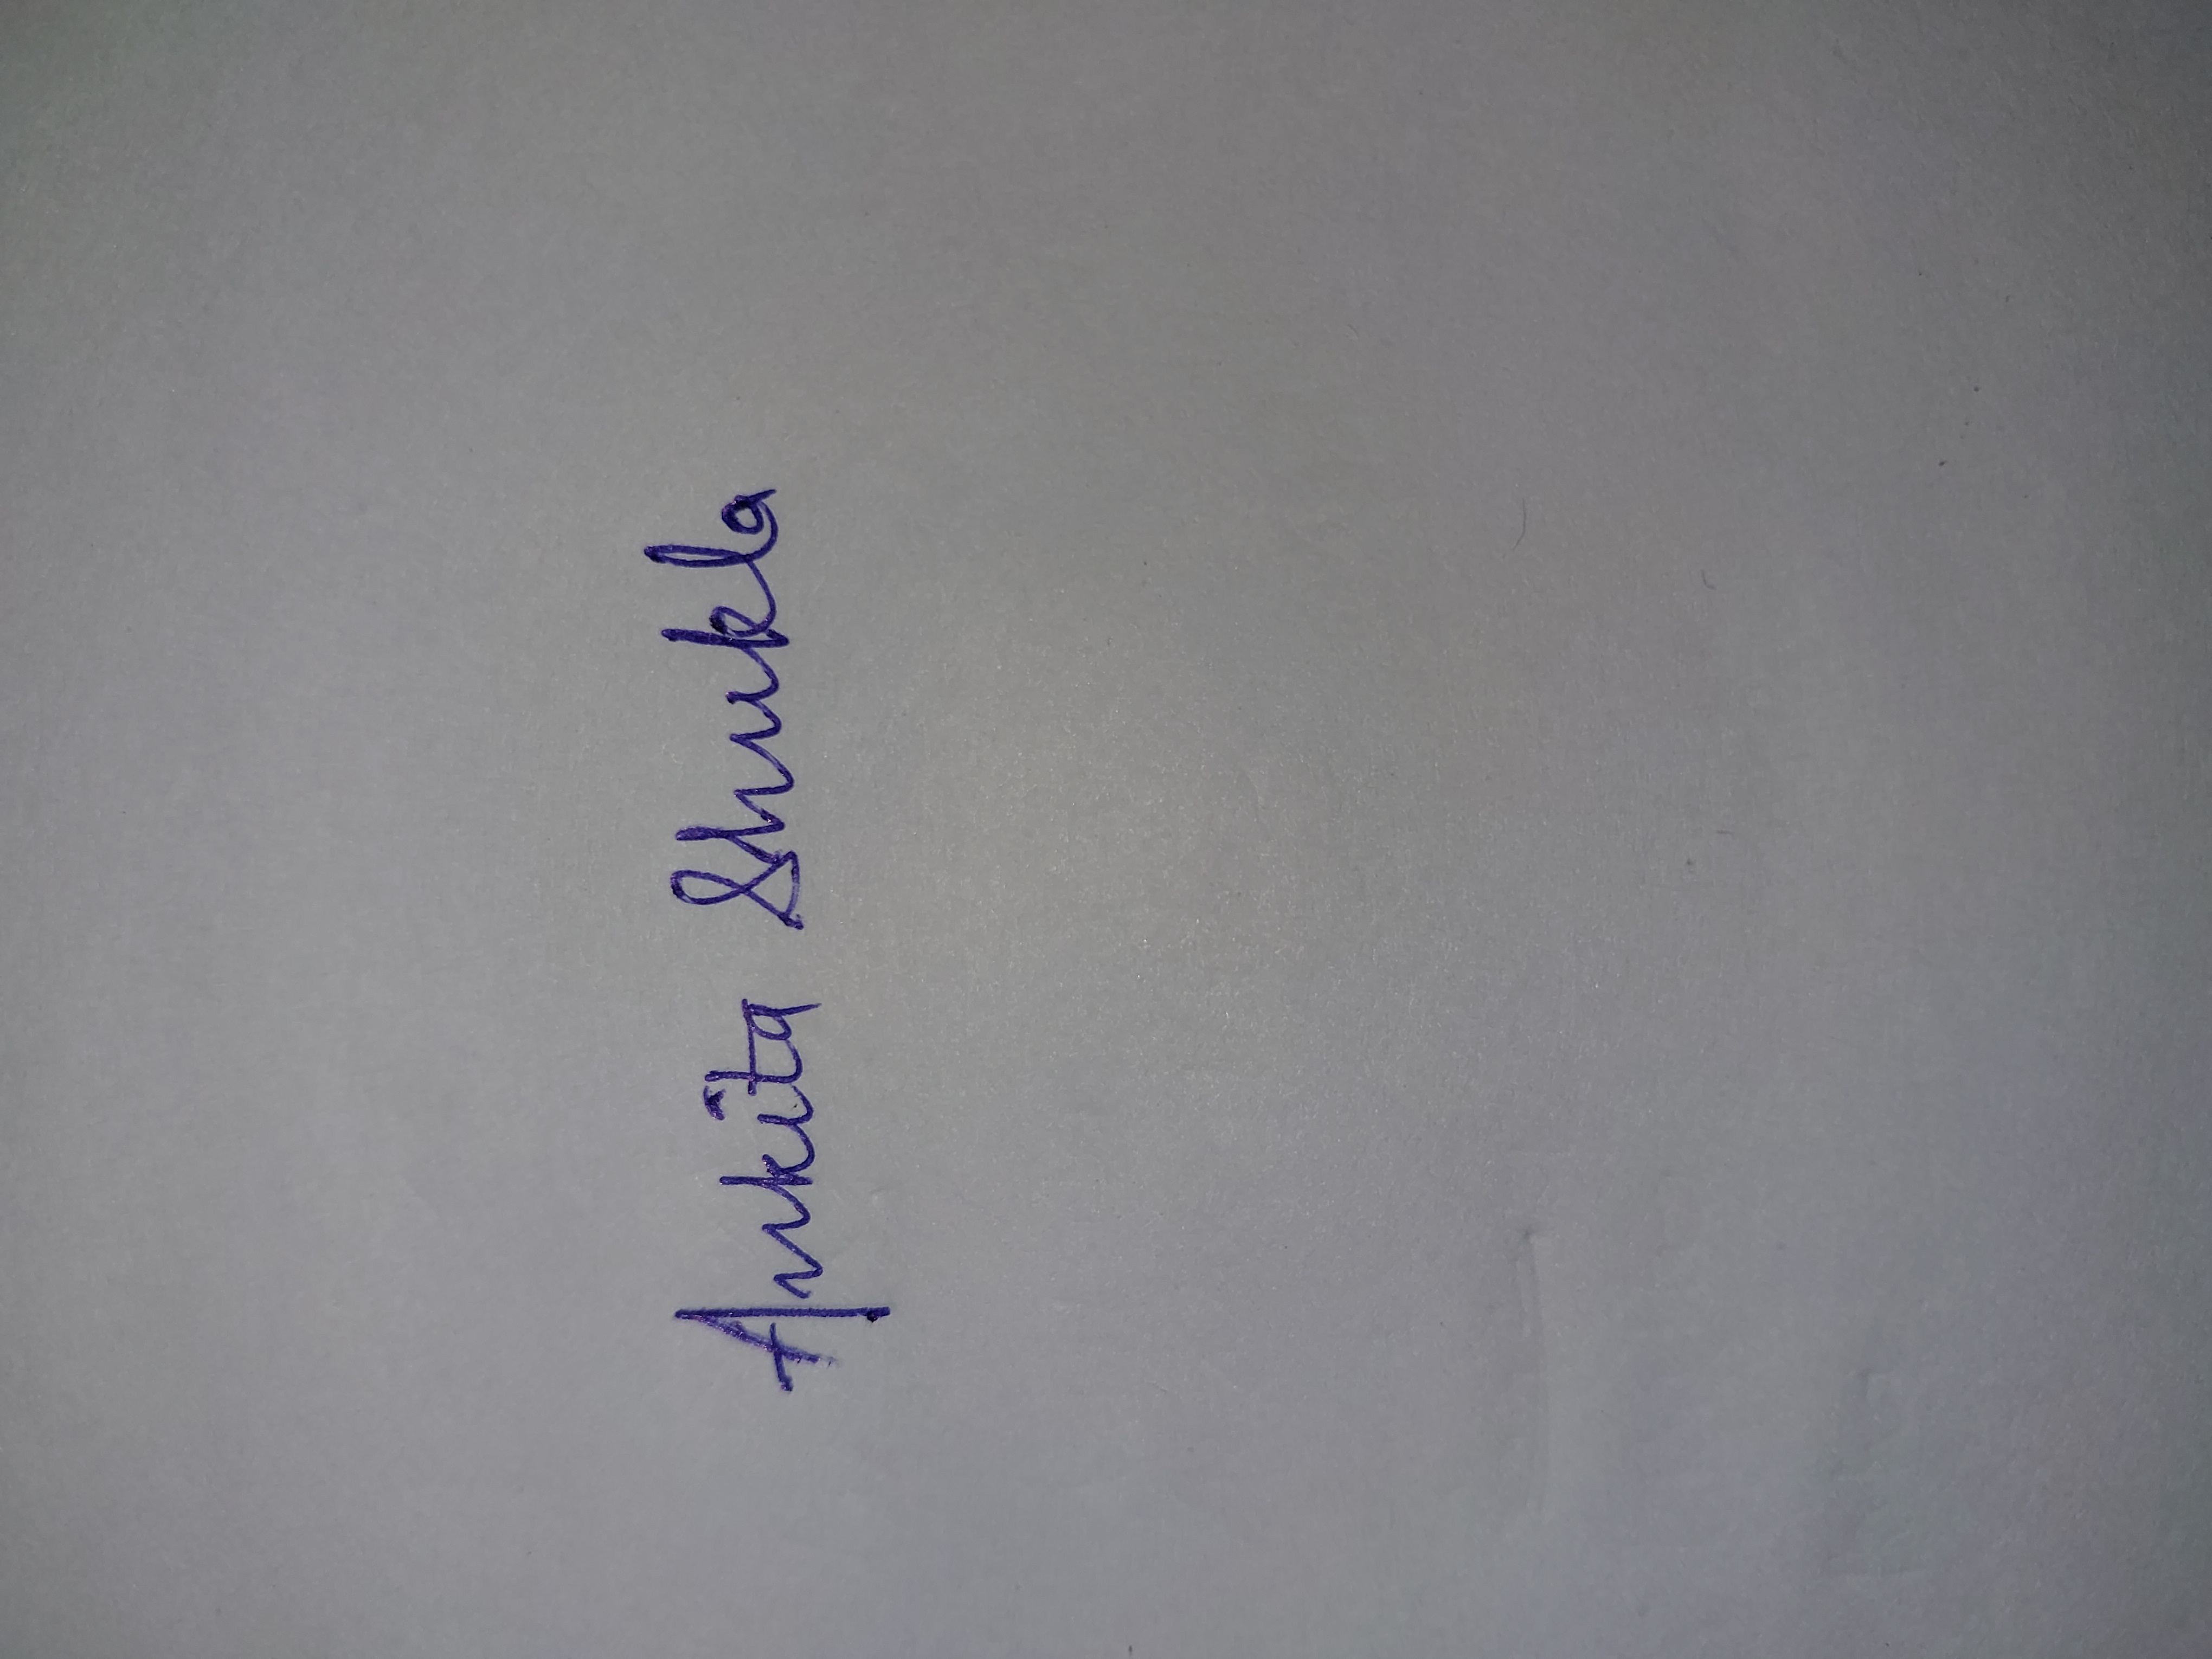 Ankita Shukla